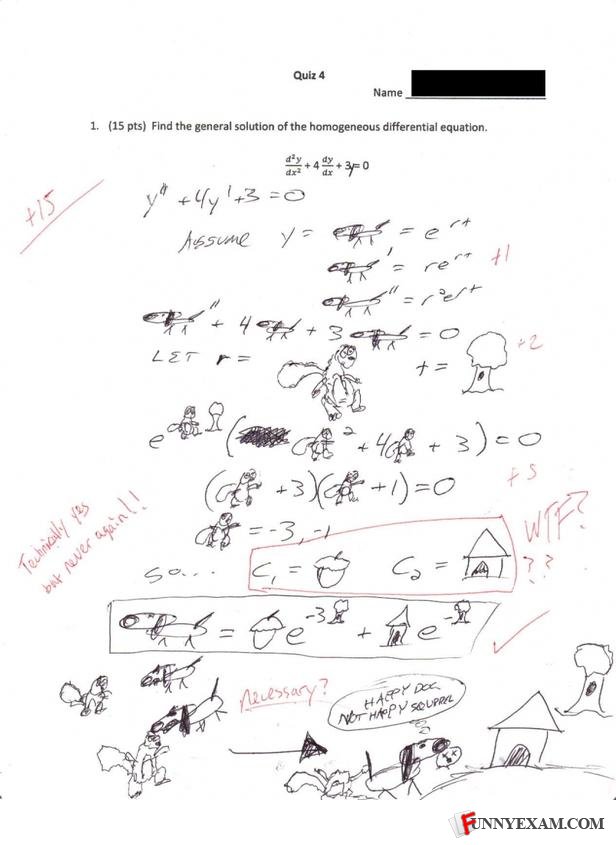 Quiz 4
Name
1. (15 pts) Find the general solution of the homogeneous differential equation.
d²y/dx² + 4 dy/dx + 3y = 0
+15
y'' + 4y' + 3 = 0
ASSUME y = = e^rt
' = re^rt +1
'' = r²e^rt
'' + 4 + 3 = 0
LET r = t = +2
e ( ² + 4 + 3) = 0
( + 3)( + 1) = 0 +5
= -3, -1
Technically yes
but never again!!
WTF?
??
so... C₁ = C₂ =
= e^-3 + e^-
necessary?
HAPPY DOG
NOT HAPPY SQUIRREL
FUNNYEXAM.COM